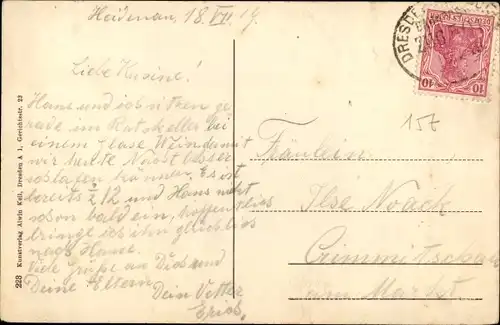 Heidenau, 18. VII. 19.
Liebe Kusine!
Hans und ich sitzen ge
rade im Ratskeller bei
einem Glase Wein damit
wir heute Nacht besser
schlafen können. Es ist
bereits ½ 12 und Hans nickt
schon bald ein, hoffentlich
bringe ich ihn glücklich
nach Hause.
Viele Grüße an Dich und
Deine Eltern
Dein Vetter
Erich.
Fräulein
Ilse Noack
Crimmitschau
am Markt.
157
DRESDEN
10 10
223 Kunstverlag Alwin Keil, Dresden A 1, Gerichtsstr. 23